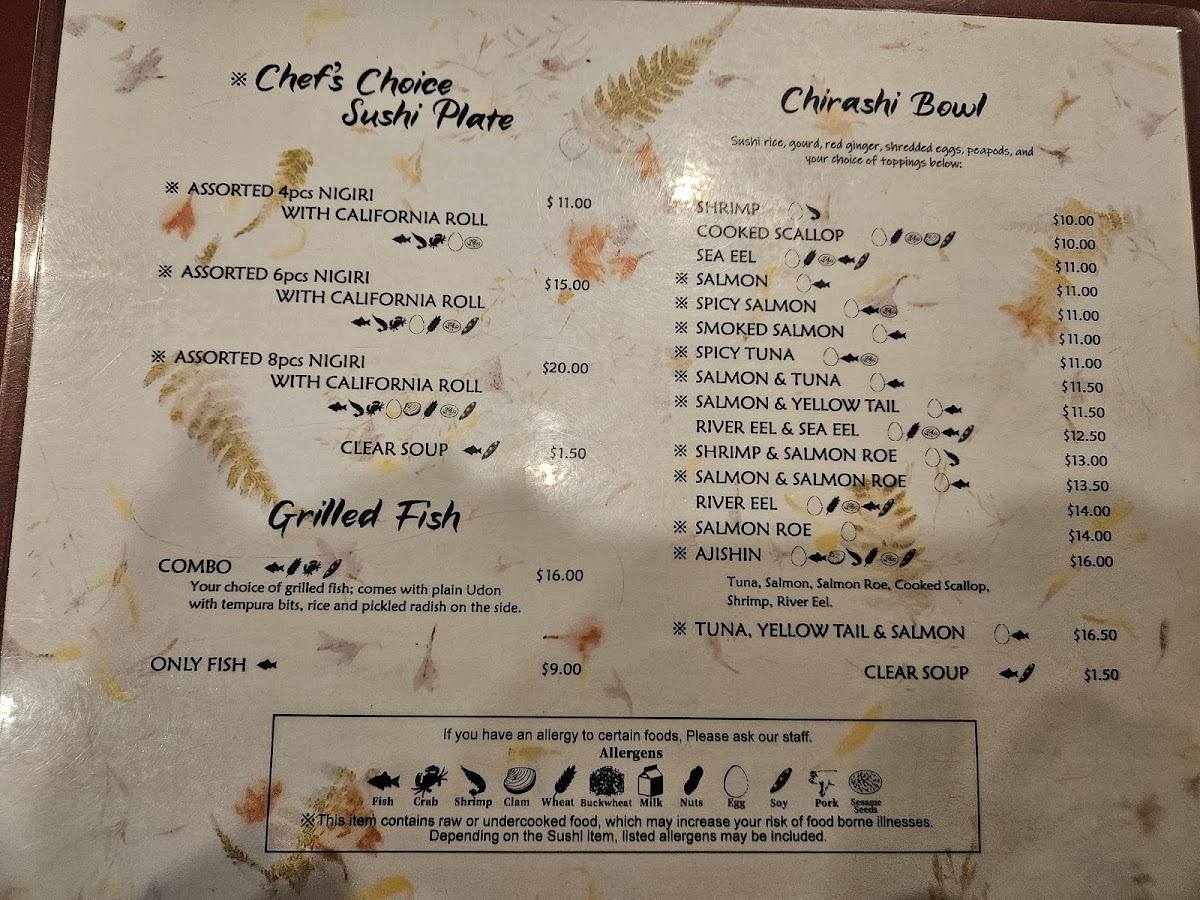 ※ Chef's Choice
Sushi Plate
※ ASSORTED 4pcs NIGIRI
WITH CALIFORNIA ROLL $11.00
※ ASSORTED 6pcs NIGIRI
WITH CALIFORNIA ROLL $15.00
※ ASSORTED 8pcs NIGIRI
WITH CALIFORNIA ROLL $20.00
CLEAR SOUP $1.50
Grilled Fish
COMBO $16.00
Your choice of grilled fish; comes with plain Udon
with tempura bits, rice and pickled radish on the side.
ONLY FISH $9.00
Chirashi Bowl
Sushi rice, gourd, red ginger, shredded eggs, peapods, and
your choice of toppings below:
SHRIMP $10.00
COOKED SCALLOP $10.00
SEA EEL $11.00
※ SALMON $11.00
※ SPICY SALMON $11.00
※ SMOKED SALMON $11.00
※ SPICY TUNA $11.00
※ SALMON & TUNA $11.50
※ SALMON & YELLOW TAIL $11.50
RIVER EEL & SEA EEL $12.50
※ SHRIMP & SALMON ROE $13.00
※ SALMON & SALMON ROE $13.50
RIVER EEL $14.00
※ SALMON ROE $14.00
※ AJISHIN $16.00
Tuna, Salmon, Salmon Roe, Cooked Scallop,
Shrimp, River Eel.
※ TUNA, YELLOW TAIL & SALMON $16.50
CLEAR SOUP $1.50
If you have an allergy to certain foods, Please ask our staff.
Allergens
Fish Crab Shrimp Clam Wheat Buckwheat Milk Nuts Egg Soy Pork Sesame Seeds
※This item contains raw or undercooked food, which may increase your risk of food borne illnesses.
Depending on the Sushi Item, listed allergens may be included.